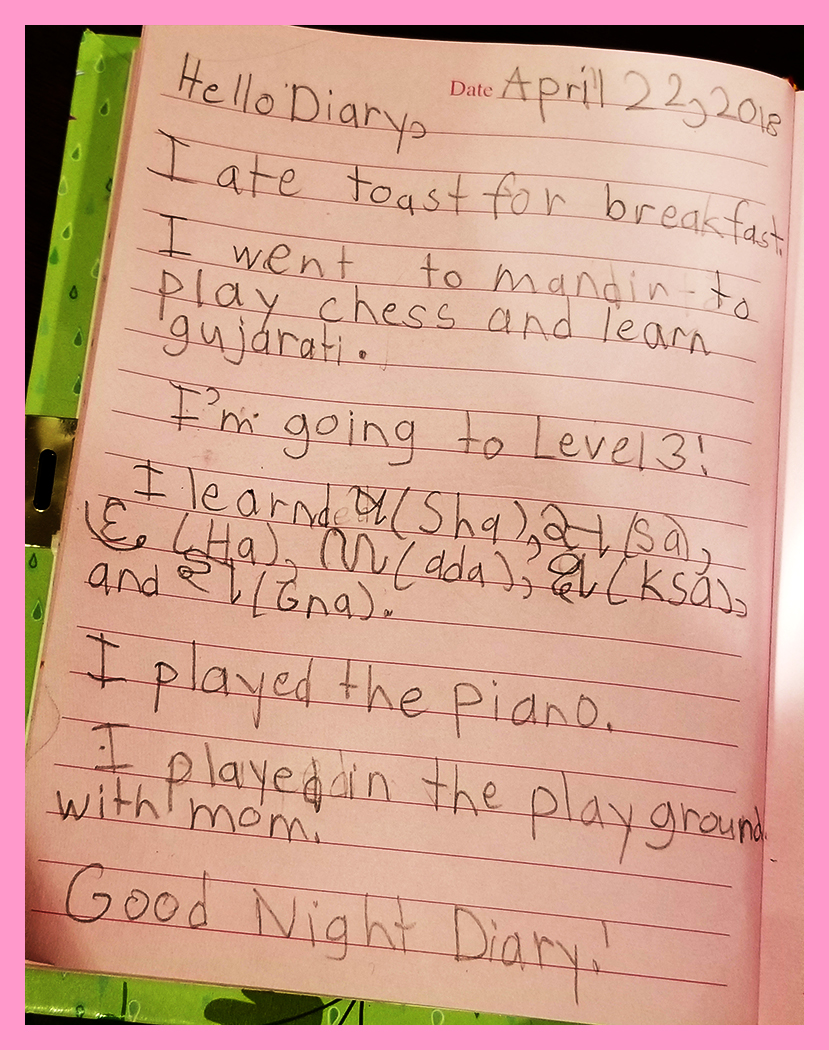 Date April 22, 2018
Hello Diary,
I ate toast for breakfast.
I went to mandin to
play chess and learn
gujarati.
I'm going to Level 3!
I learnd ષ (Sha), સ (Sa),
હ (Ha), ળ (ada), ક્ષ (Ksa),
and જ્ઞ (Gna).
I played the piano.
I played in the play ground
with mom.
Good Night Diary!